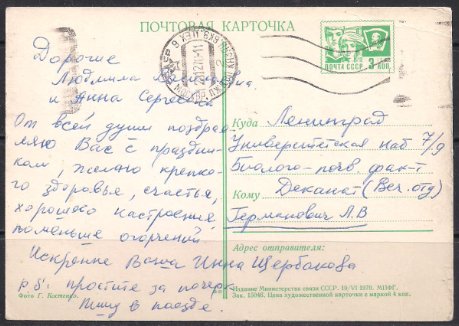 ПОЧТОВАЯ КАРТОЧКА
ПОЧТА СССР 3 КОП
Дорогие
Людмила
и Анна Сергеевна
От всей души поздрав
ляю Вас с праздни
ком, желаю крепко
го здоровья, счастья,
хорошего настроения
поменьше огорчений
Искренне Ваша Инна Щербакова
p.s. простите за почерк
пишу в поезде.
Куда Ленинград
Университетская наб 7/9
Биолого-почв. факт
Кому Деканат (Веч. отд)
Германович Л.В
Адрес отправителя:
Издание Министерства связи СССР. 19/VI 1970. МПФГ.
Зак. 15046. Цена художественной карточки с маркой 4 коп.
Фото Г. Костенко